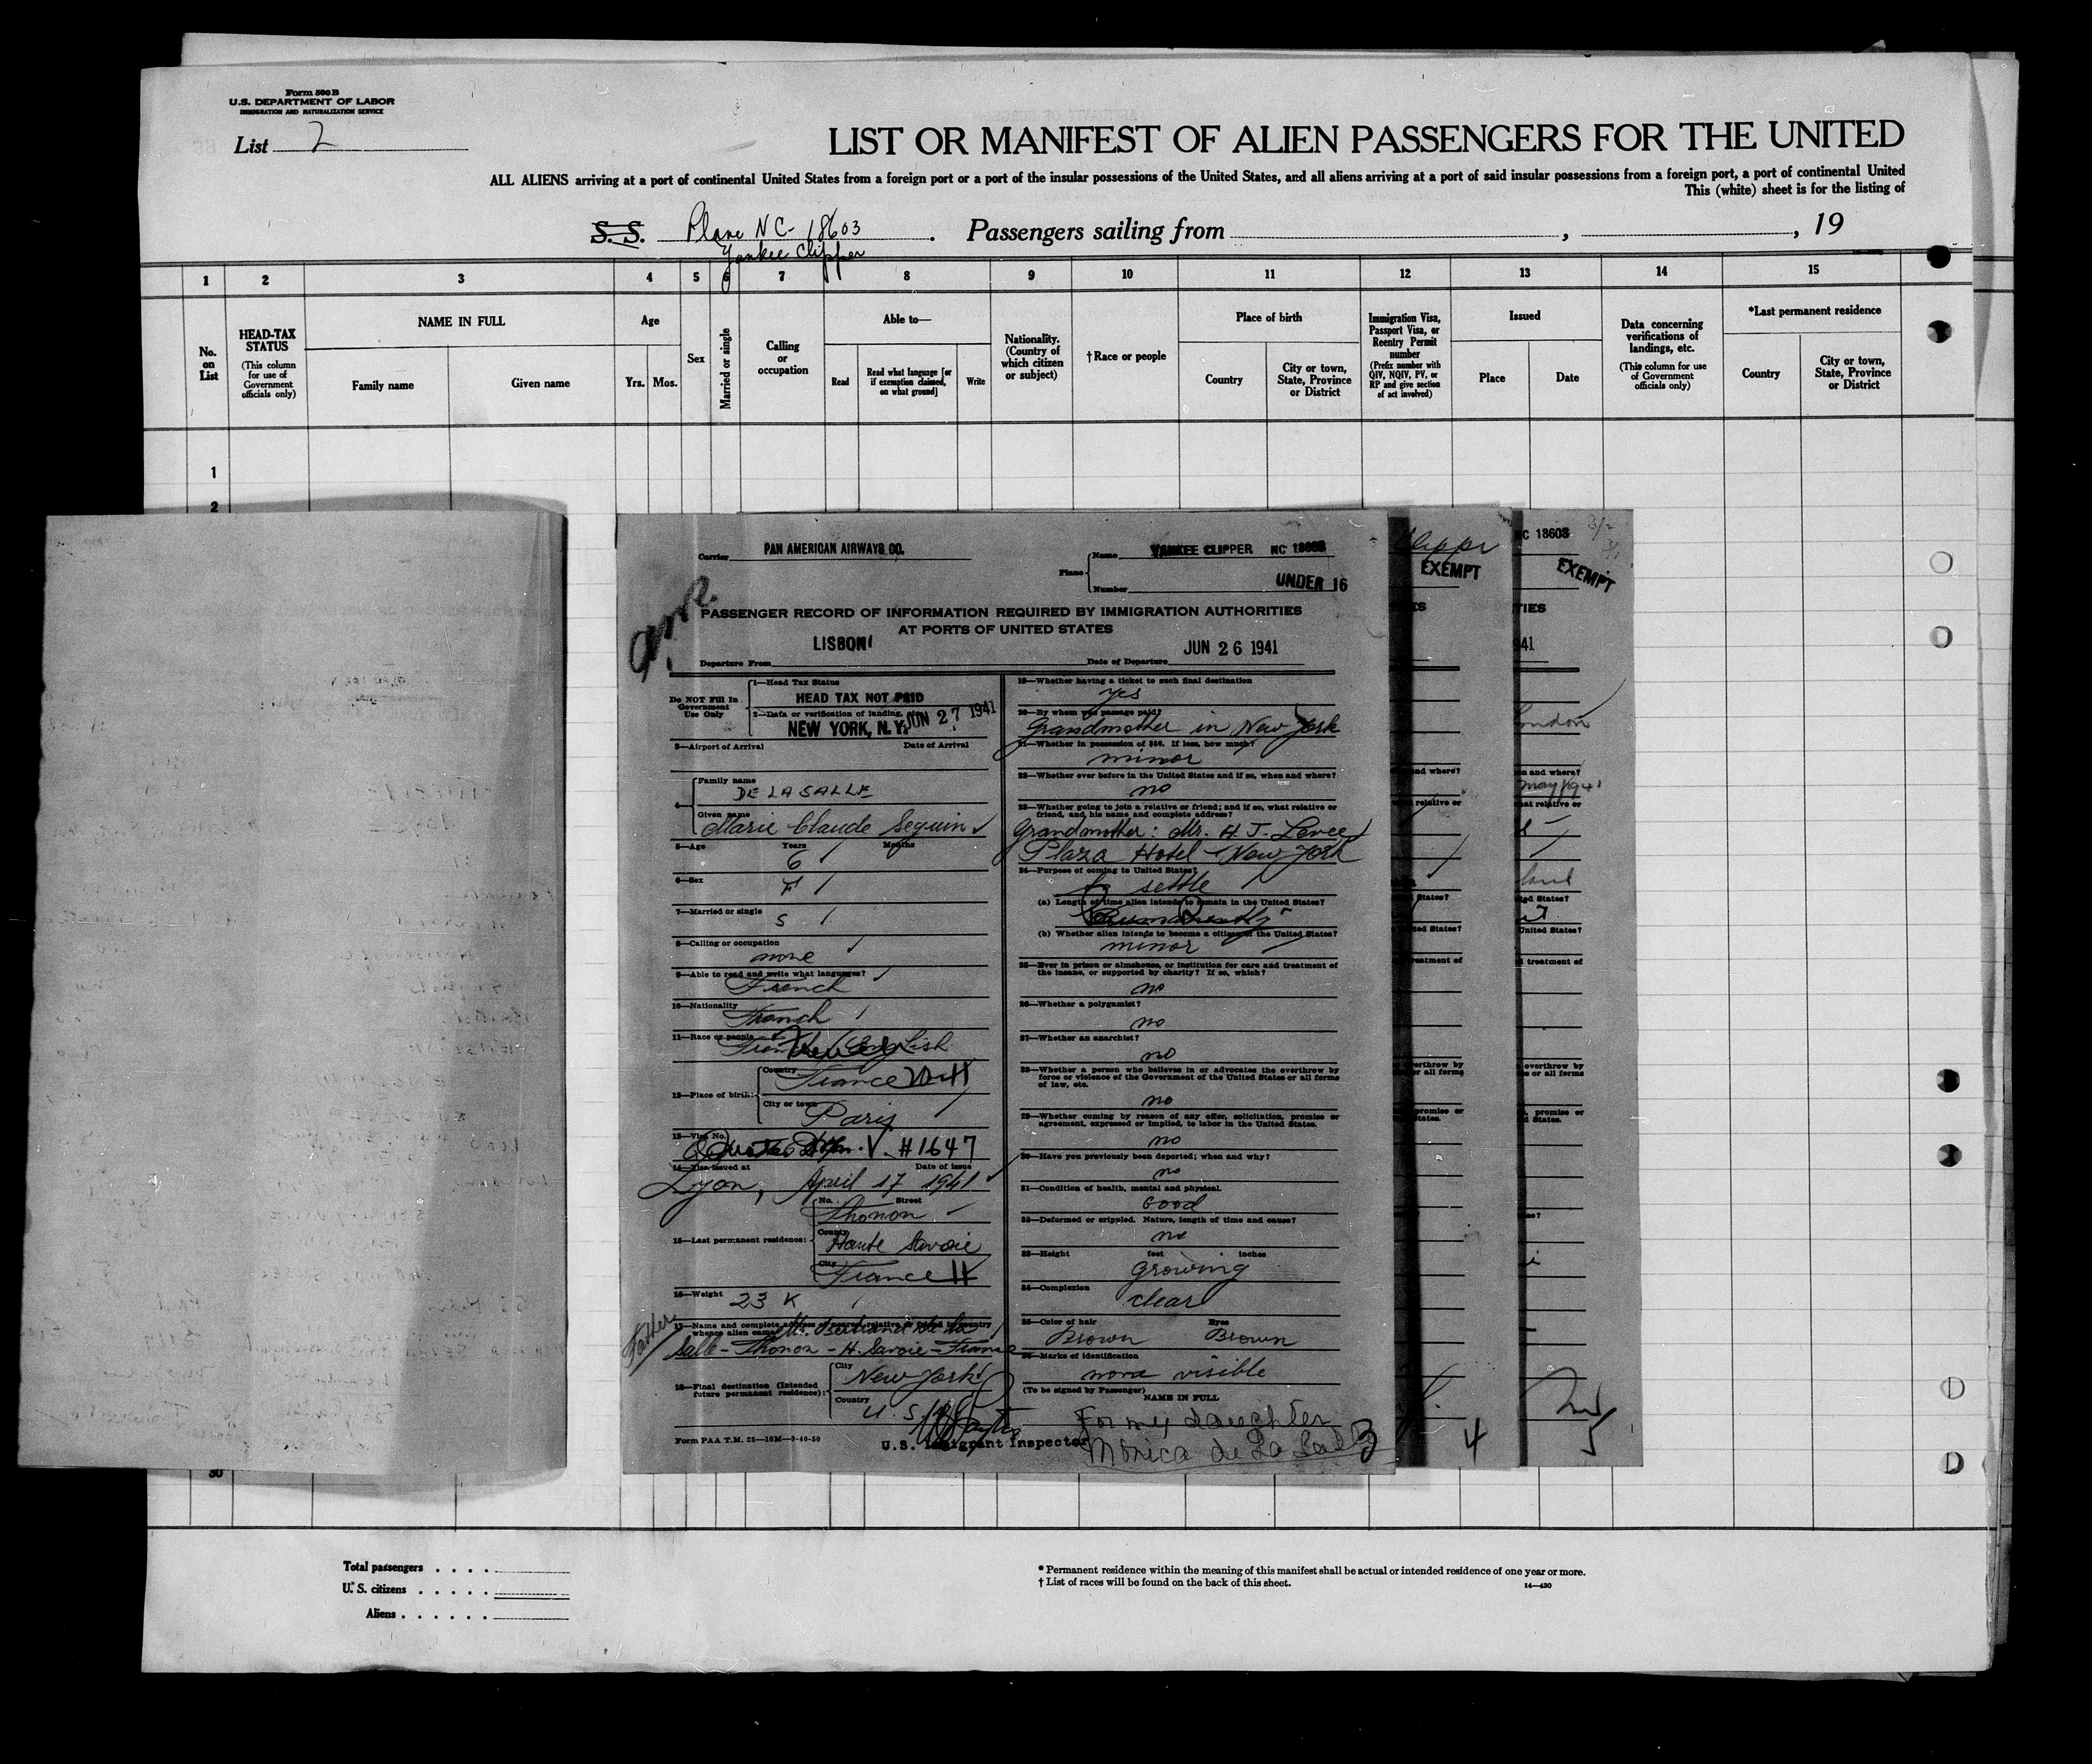 Form 500 B
U.S. DEPARTMENT OF LABOR
IMMIGRATION AND NATURALIZATION SERVICE
List 2
LIST OR MANIFEST OF ALIEN PASSENGERS FOR THE UNITED
ALL ALIENS arriving at a port of continental United States from a foreign port or a port of the insular possessions of the United States, and all aliens arriving at a port of said insular possessions from a foreign port, a port of continental United
This (white) sheet is for the listing of
S. S. Plane NC-18603 . Passengers sailing from , , 19
Yankee Clipper
1 2 3 4 5 6 7 8 9 10 11 12 13 14 15
No. on List
HEAD-TAX STATUS
(This column for use of Government officials only)
NAME IN FULL
Family name
Given name
Age
Yrs. Mos.
Sex
Married or single
Calling or occupation
Able to—
Read
Read what language [or if exemption claimed, on what ground]
Write
Nationality. (Country of which citizen or subject)
†Race or people
Place of birth
Country
City or town, State, Province or District
Immigration Visa, Passport Visa, or Reentry Permit number
(Prefix number with QIV, NQIV, PV, or RP and give section of act involved)
Issued
Place
Date
Data concerning verifications of landings, etc.
(This column for use of Government officials only)
*Last permanent residence
Country
City or town, State, Province or District
1
2
Carrier PAN AMERICAN AIRWAYS CO.
Plane
Name YANKEE CLIPPER NC 18603
Number UNDER 16
PASSENGER RECORD OF INFORMATION REQUIRED BY IMMIGRATION AUTHORITIES
AT PORTS OF UNITED STATES
Departure From LISBON
Date of Departure JUN 26 1941
Do NOT Fill In Government Use Only
1—Head Tax Status
HEAD TAX NOT PAID
2—Data or verification of landing, etc.
NEW YORK, N.Y. JUN 27 1941
3—Airport of Arrival Date of Arrival
4—
Family name
DE LA SALLE
Given name
Marie Claude Seguin
5—Age Years Months
6
6—Sex
F
7—Married or single
S
8—Calling or occupation
none
9—Able to read and write what languages?
French
10—Nationality
French
11—Race or people
English
12—Place of birth:
Country
France
City or town
Paris
13—Visa No.
V. #1647
14—Visa issued at Date of issue
Lyon, April 17 1941
15—Last permanent residence:
No. Street
Thonon
County
Haute Savoie
City
France
16—Weight
23 K
17—Name and complete address of nearest relative or friend in country whence alien came
Father
Mr. Bertrand de la
Salle - Thonon - H. Savoie - France
18—Final destination (Intended future permanent residence):
City
New York
Country
U.S.
Form PAA T.M. 23—15M—9-40-50
U.S. Immigrant Inspector
19—Whether having a ticket to such final destination
yes
20—By whom was passage paid?
Grandmother in New York
21—Whether in possession of $50. If less, how much?
minor
22—Whether ever before in the United States and if so, when and where?
no
23—Whether going to join a relative or friend; and if so, what relative or friend, and his name and complete address?
Grandmother: Mr. H. J.
Plaza Hotel - New York
24—Purpose of coming to United States?
to settle
(a) Length of time alien intends to remain in the United States?
Permanently
(b) Whether alien intends to become a citizen of the United States?
minor
25—Ever in prison or almshouse, or institution for care and treatment of the insane, or supported by charity? If so, which?
no
26—Whether a polygamist?
no
27—Whether an anarchist?
no
28—Whether a person who believes in or advocates the overthrow by force or violence of the Government of the United States or all forms of law, etc.
no
29—Whether coming by reason of any offer, solicitation, promise or agreement, expressed or implied, to labor in the United States.
no
30—Have you previously been deported; when and why?
no
31—Condition of health, mental and physical.
Good
32—Deformed or crippled. Nature, length of time and cause?
no
33—Height feet inches
growing
34—Complexion
clear
35—Color of hair Eyes
Brown Brown
36—Marks of identification
none visible
(To be signed by Passenger)
NAME IN FULL
For my daughter
Monica de La Salle
3
EXEMPT
4
NC 18603
EXEMPT
London
5
30
Total passengers
U. S. citizens
Aliens
* Permanent residence within the meaning of this manifest shall be actual or intended residence of one year or more.
† List of races will be found on the back of this sheet.
14—430